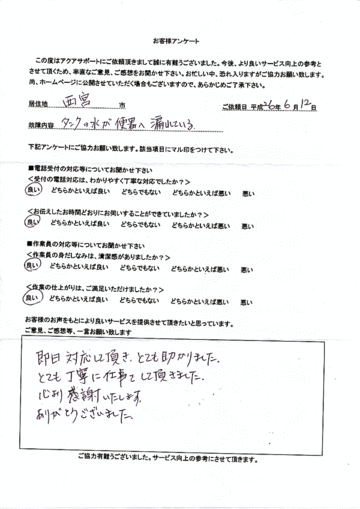 お客様アンケート
この度はアクアサポートにご依頼頂きまして誠に有難うございました。今後、より良いサービス向上の参考と
させて頂くため、率直なご意見、ご感想をお聞かせ下さい。お忙しい中、恐れ入りますがご協力お願い致します。
尚、ホームページに公開させていただく場合もございますので、あらかじめご了承下さい。
居住地 西宮 市 ご依頼日 平成26年6月12日
故障内容 タンクの水が便器へ漏れている
下記アンケートにご協力お願い致します。該当項目にマル印をつけて下さい。
■電話受付の対応等についてお聞かせ下さい
<受付の電話対応は、わかりやすく丁寧な対応でしたか?>
良い どちらかといえば良い どちらでもない どちらかといえば悪い 悪い
<お伝えしたお時間どおりにお伺いすることができていましたか?>
良い どちらかといえば良い どちらでもない どちらかといえば悪い 悪い
■作業員の対応等についてお聞かせ下さい
<作業員の身だしなみは、清潔感がありましたか?>
良い どちらかといえば良い どちらでもない どちらかといえば悪い 悪い
<作業の仕上がりは、ご満足いただけましたか?>
良い どちらかといえば良い どちらでもない どちらかといえば悪い 悪い
お客様のお声をもとにより良いサービスを提供させて頂きたいと思っています。
ご意見、ご感想等、一言お願い致します
即日対応して頂き、とても助かりました。
とても丁寧に仕事をして頂きました。
心より感謝いたします。
ありがとうございました。
ご協力有難うございました。サービス向上の参考にさせて頂きます。